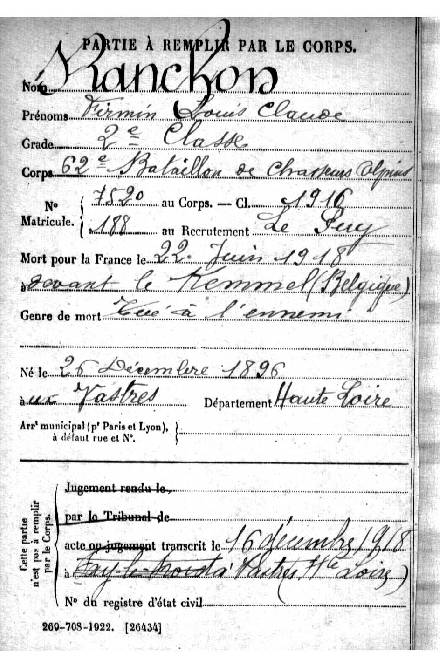 PARTIE À REMPLIR PAR LE CORPS.
Nom Ranchon
Prénoms Firmin Louis Claude
Grade 2e Classe
Corps 62e Bataillon de Chasseurs Alpins
N° Matricule. { 7520 au Corps. — Cl. 1916
188 au Recrutement Le Puy
Mort pour la France le 22 Juin 1918
à devant le Kemmel (Belgique)
Genre de mort Tué à l'ennemi
Né le 26 Décembre 1896
à ux Vastres Département Haute Loire
Arrt municipal (pr Paris et Lyon), à défaut rue et N°.
Cette partie n'est pas à remplir par le Corps.
Jugement rendu le
par le Tribunal de
acte ou jugement transcrit le 16 décembre 1918
à Fay-le-Froid à Vastres (Hte Loire)
N° du registre d'état civil
269-708-1922. [26434]